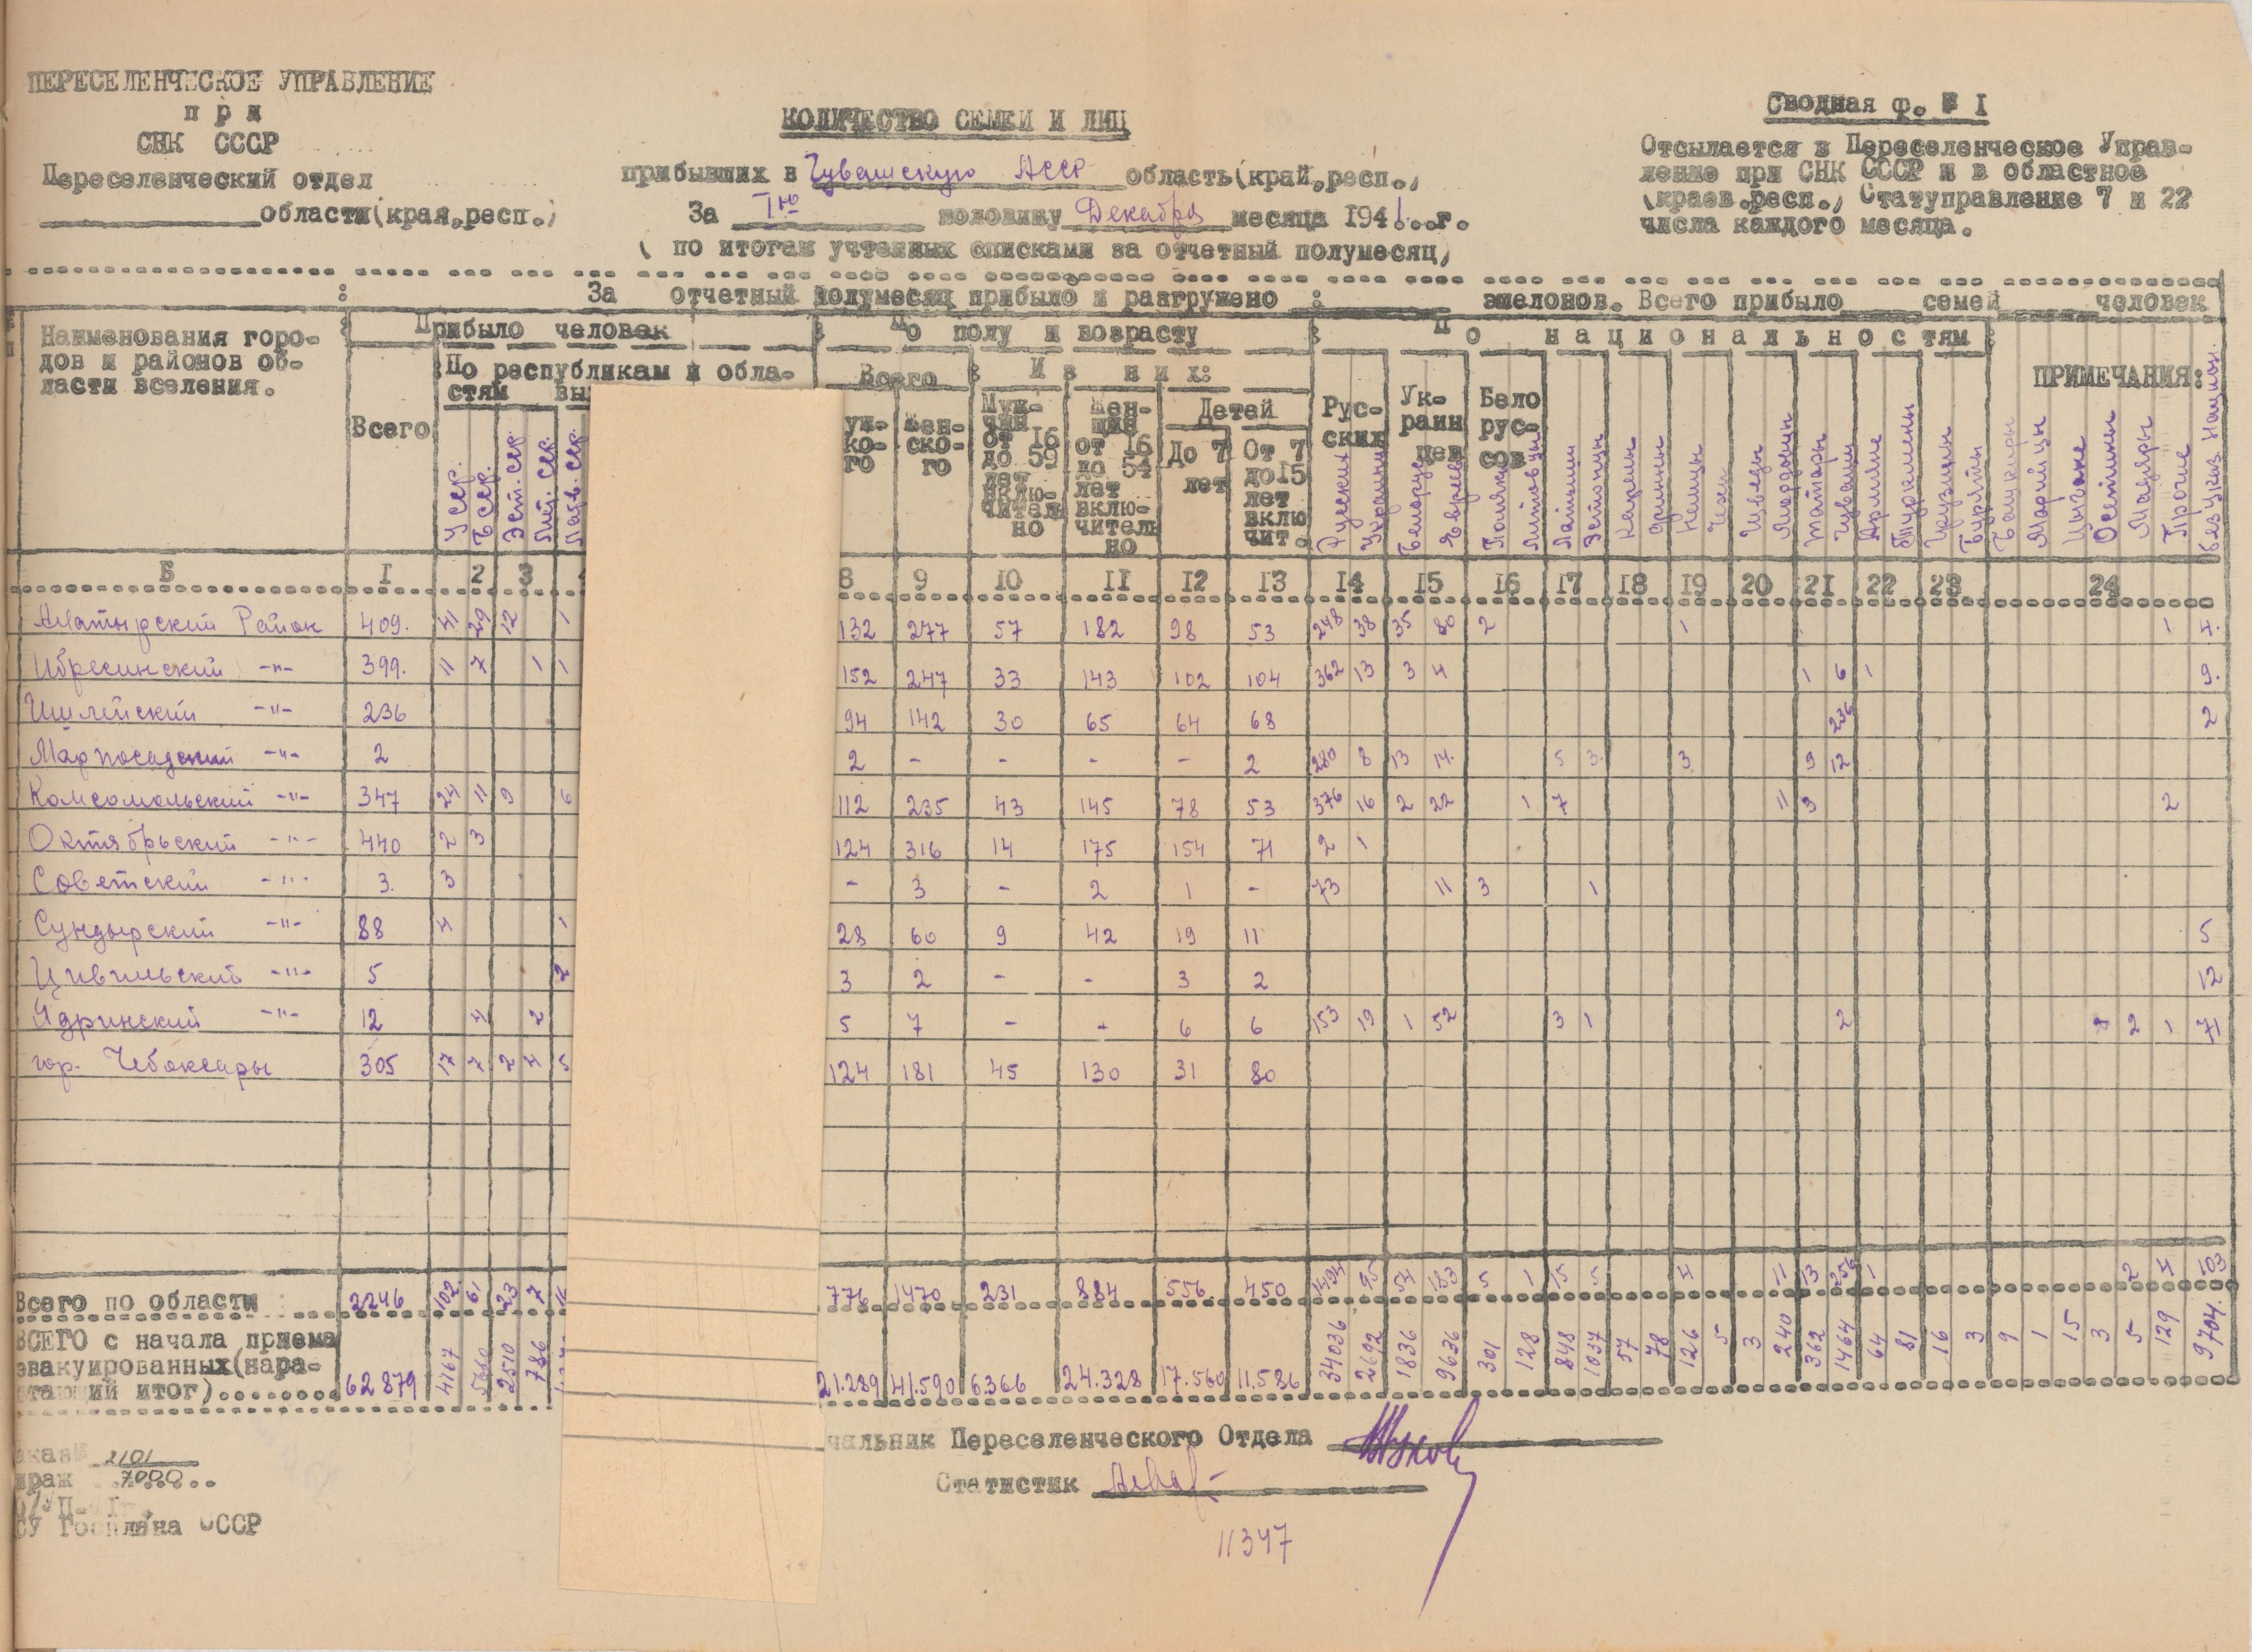 ПЕРЕСЕЛЕНЧЕСКОЕ УПРАВЛЕНИЕ
при
СНК СССР
Переселенческий отдел
области(края,респ.)
КОЛИЧЕСТВО СЕМЕЙ И ЛИЦ
прибывших в Чувашскую АССР область(край,респ.)
За Iю половину Декабря месяца 1941...г.
( по итогам учтенных списками за отчетный полумесяц)
Сводная ф. № I
Отсылается в Переселенческое Управ-
ление при СНК СССР и в областное
(краев.респ.) Статуправление 7 и 22
числа каждого месяца.
За отчетный полумесяц прибыло и разгружено : эшелонов. Всего прибыло семей человек
Наименования горо-
дов и районов об-
ласти вселения.
Прибыло человек
Всего
По республикам и обла-
стям вы
УССР.
БССР.
Эст. ССР.
Лит. ССР.
Латв. ССР.
По полу и возрасту
Всего
уж-
ко-
го
Жен-
ско-
го
Из них:
Муж-
чин
от 16
до 59
лет
вклю-
читель
но
Жен-
щин
от 16
до 54
лет
вклю-
читель
но
Детей
До 7
лет
От 7
до 15
лет
вклю
чит.
По национальностям
Рус-
ских
Ук-
раин
цев
Бело
рус-
сов
ПРИМЕЧАНИЯ:
Русских
Украинц
Белорус
Евреев
Поляки
Литовцы
Латыши
Эстонцы
Карелы
Финны
Немцы
Чехи
Шведы
Мордовцы
Татары
Чуваши
Армяне
Туркмены
Грузины
Буряты
Башкиры
Марийцы
Цыгане
Осетины
Мадяры
Прочие
без указ. национ.
Б I 2 3 8 9 10 11 12 13 14 15 16 17 18 19 20 21 22 23 24
Алатырский Район 409. 41 29 12 1 132 277 57 182 98 53 248 38 35 80 2 1 1 4.
Ибресинский -"- 399. 11 7 1 1 152 247 33 143 102 104 362 13 3 4 1 6 1 9.
Ишлейский -"- 236 94 142 30 65 64 68 236 2
Марпосадский -"- 2 2 - - - - 2 280 8 13 14. 5 3. 3 9 12
Комсомольский -"- 347 24 11 9 6 112 235 43 145 78 53 376 16 2 22 1 7 11 3 2
Октябрьский -"- 440 2 3 124 316 14 175 154 71 2 1
Советский -"- 3. 3 - 3 - 2 1 - 73 11 3 1
Сундырский -"- 88 4 1 28 60 9 42 19 11 5
Цивильский -"- 5 2 3 2 - - 3 2 12
Ядринский -"- 12 4 2 5 7 - - 6 6 153 19 1 52 3 1 2 2 1 71
гор. Чебоксары 305 17 7 2 4 5 124 181 45 130 31 80
Всего по области 2246 102 61 23 7 776 1470 231 884 556 450 1494 95 54 183 5 1 15 5 4 11 13 256 1 2 4 103
ВСЕГО с начала приема
эвакуированных(нара-
стающий итог)........ 62879 4167 5660 2510 786 21.289 41.590 6.366 24.328 17.560 11.586 34036 2692 1836 9636 301 128 848 1037 57 78 126 5 3 240 362 1464 64 81 16 3 9 1 15 3 5 129 9704.
чальник Переселенческого Отдела
Статистик
аказ№ 2101
ираж 7000
СУ Госплана СССР
11347